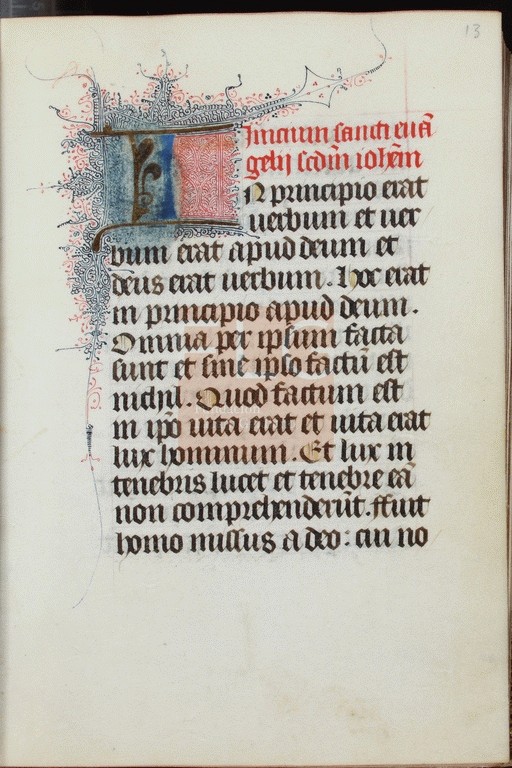 13
Inicium sancti euā
gelij scdm̄ iohēm
In principio erat
uerbum et uer
bum erat apud deum et
deus erat uerbum. Hoc erat
in principio apud deum.
Omnia per ipsum facta
sunt et sine ipso factū est
nichil. Quod factum est
in ipō uita erat et uita erat
lux hominum. Et lux in
tenebris lucet et tenebre eā
non comprehenderūt. ffuit
homo missus a deo: cui no